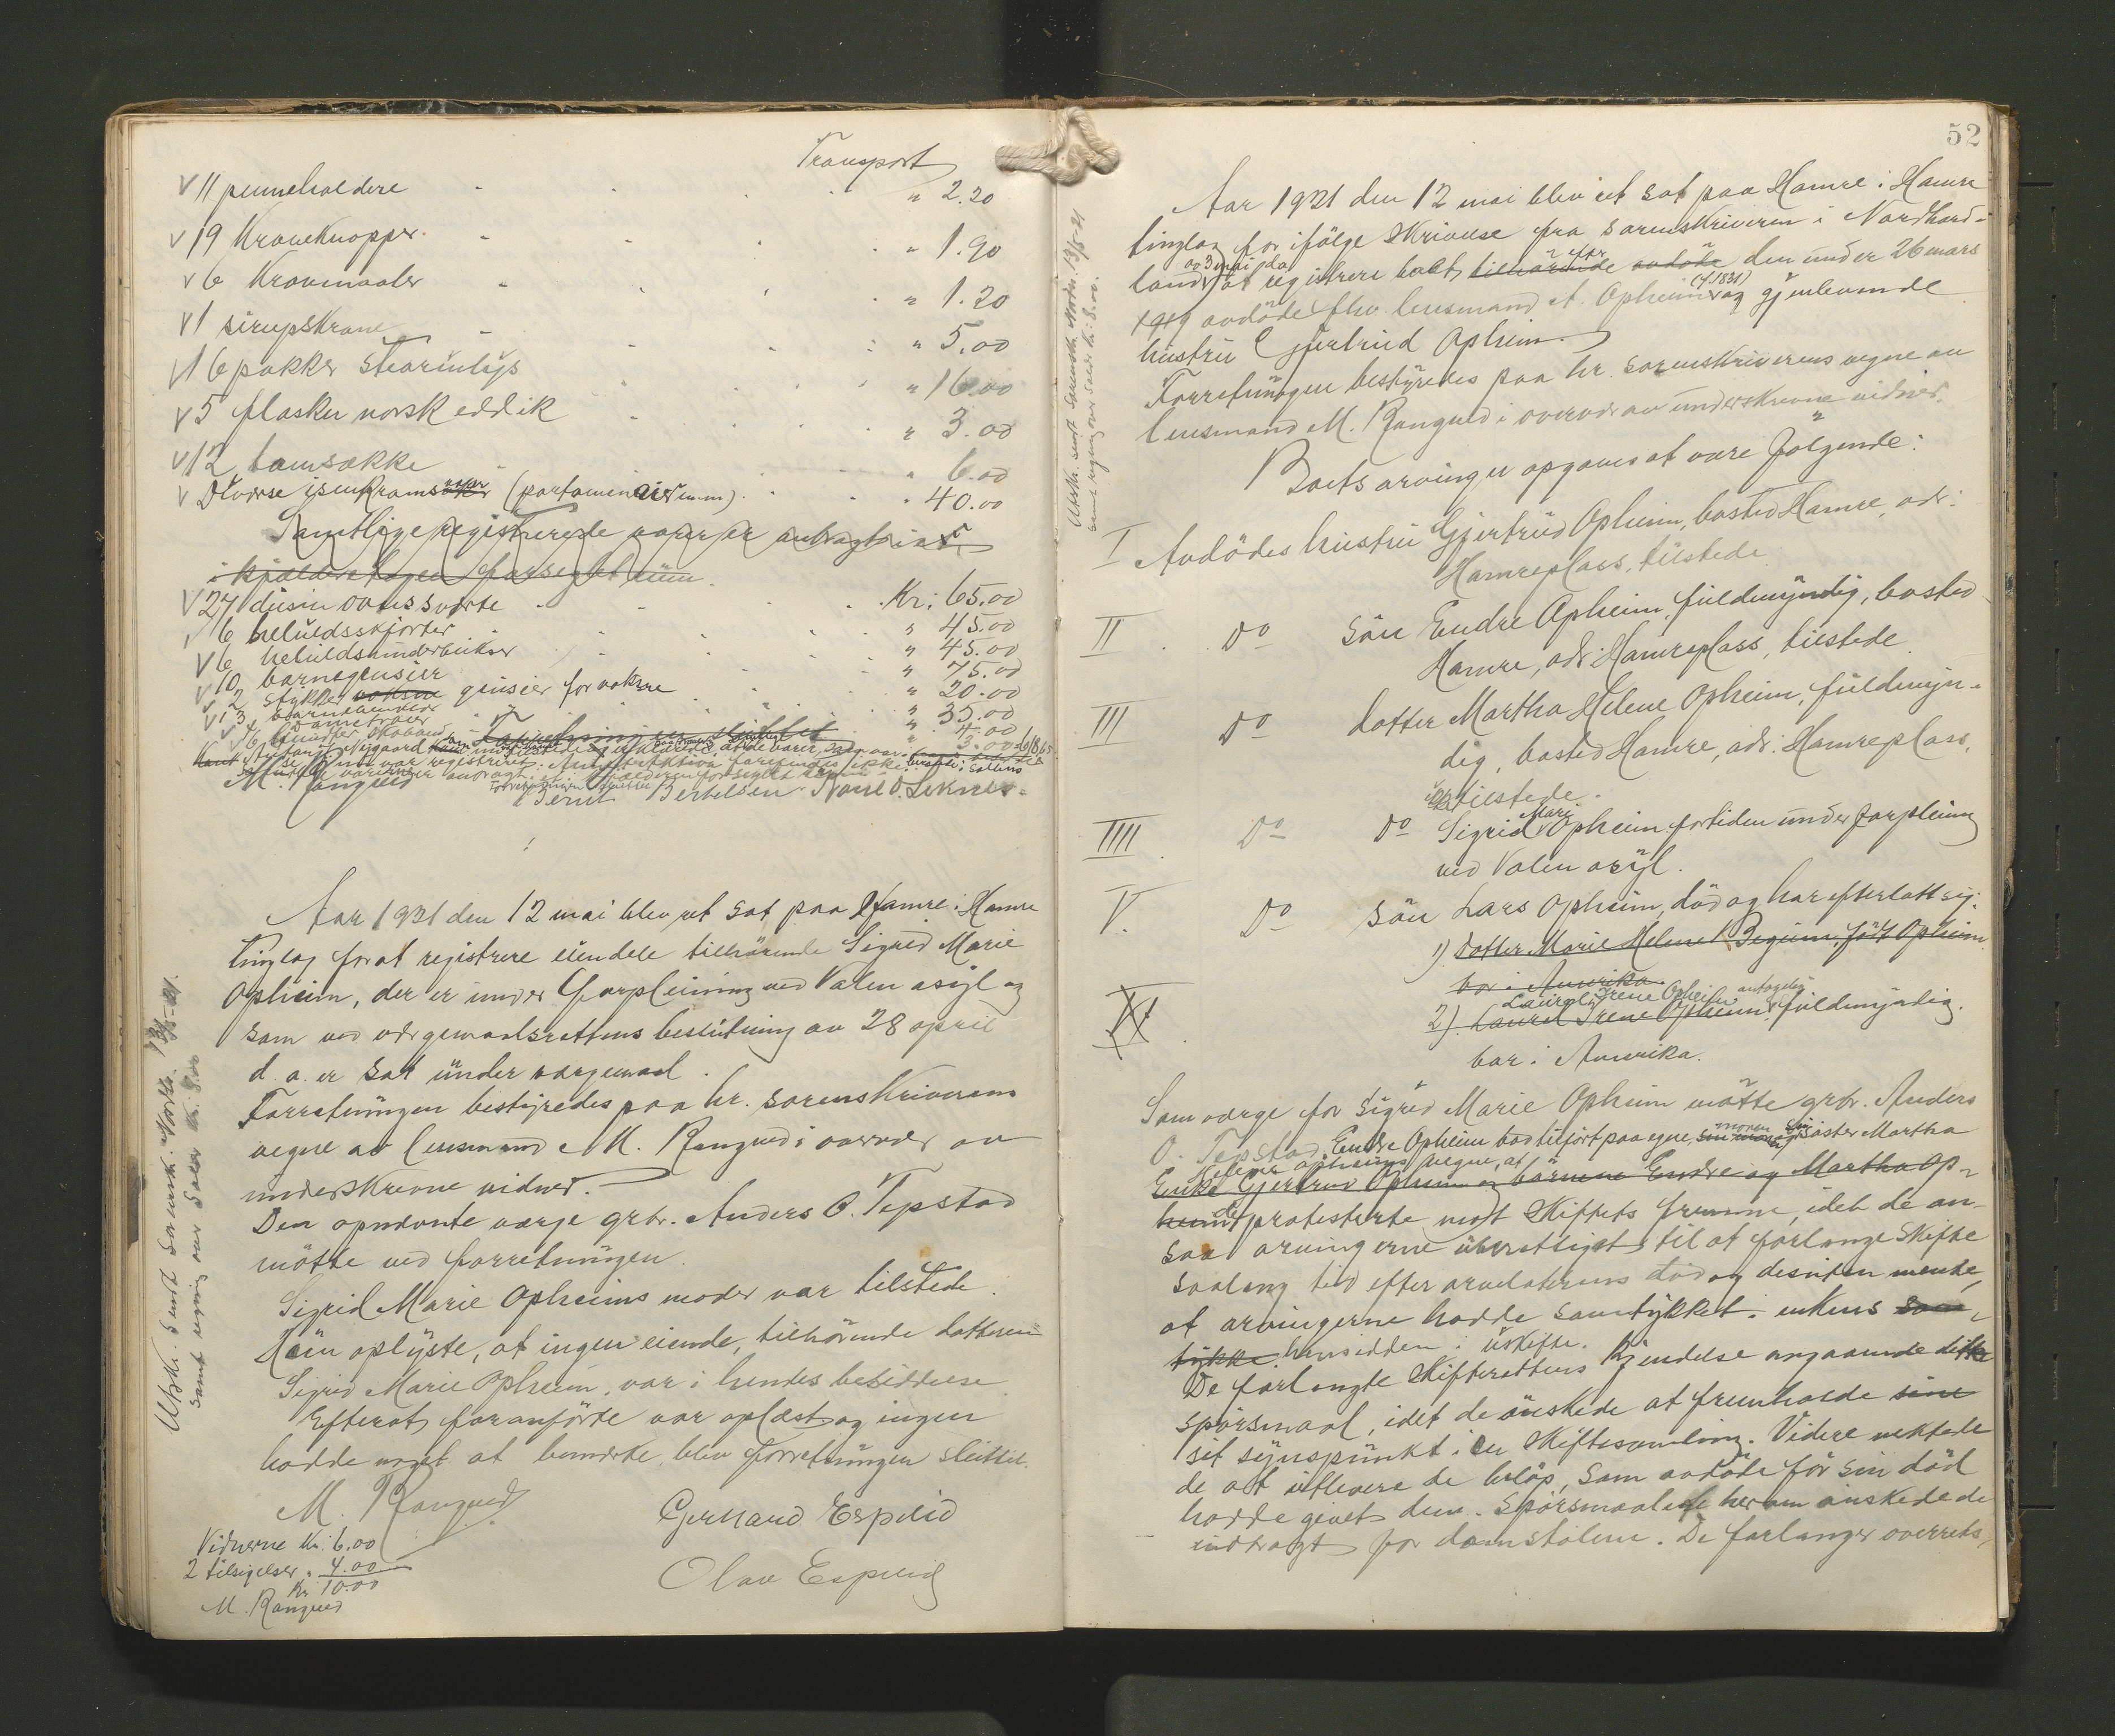 Transport
11 penneholdere " 2.20
19 Kraveknapper " 1.90
6 Kravmaaler " 1.20
1 sirupskrane " 5.00
16 pakker stearinlys " 16.00
5 flasker norsk eddik " 3.00
12 tomsække " 6.00
Diverse isenkramsaker varer (portemonaier m.m.) " 40.00
Samtlige registrerede varer er anbragt i et
i kjælderetagen forseglet rum.
27 dusin ovnssværte Kr: 65.00
6 heluldsskjorter " 45.00
6 heluldsunderbukser " 45.00
10 barnegensier " 75.00
2 stykker voksne gensier for voksne " 20.00
" 35.00
" 4.00
" 3.00
M. Rangved
Bernt Bertelsen
Aar 1921 den 12 mai blev ret sat paa Hamre i Hamre
tinglag for at registrere eiendele tilhørende Sigrid Marie
Opheim, der er under forpleining ved Valen asyl og
som ved overgemaalsrettens beslutning av 28 april
d. a. er sat under værgemaal.
Forretningen bestyredes paa hr. sorenskriverens
vegne av lensmand M. Rangved i overvær av
underskrevne vidner.
Den opnævnte værge grbr. Anders O. Tepstad
møtte ved forretningen.
Sigrid Marie Opheims moder var tilstede.
Hun oplyste, at ingen eiende, tilhørende datteren
Sigrid Marie Opheim, var i hendes besiddelse.
Efterat foranførte var oplæst og ingen
hadde noget at bemerke, blev forretningen sluttet.
M. Rangved
Gerhard Espelid
Olav Espelid
Vidnerne Kr: 6.00
2 tilsigelser " 4.00
Kr: 10.00
M. Rangved
Utskr. sendt Sorensk. Nordh. 13/5-21.
samt regning over salær kr: 8.00
52
Utskr. sendt Sorensk. Nordh. 13/5-21
samt regning over salær kr: 8.00.
Aar 1921 den 12 mai blev ret sat paa Hamre i Hamre
tinglag for ifølge skrivelse fra sorenskriveren i Nordhord-
land av 3 mai da at registrere boet tilhørende efter avdøde den under 26 mars
1919 avdøde fhv lensmand A. Opheim (f. 1831) og gjenlevende
hustru Gjertrud Opheim.
Forretningen bestyredes paa hr. sorenskriverens vegne av
lensmand M. Rangved i overvær av underskrevne vidner.
Boets arvinger opgaves at være følgende:
I Avdødes hustru Gjertrud Opheim, bosted Hamre, adr:
Hamreplass, tilstede.
II Do søn Endre Opheim, fuldmyndig, bosted
Hamre, adr: Hamreplass, tilstede.
III Do datter Martha Helene Opheim, fuldmyn-
dig, bosted Hamre, adr: Hamreplass,
tilstede.
IIII Do Do Sigrid Marie Opheim fortiden under forpleining
ved Valen asyl.
V. Do søn Lars Opheim, død og har efterlatt sig:
1) Datter Marie Helene Begum, født Opheim
bor i Amerika.
VI
Laurel Irene Opheim antagelig
2). Laurel Irene Opheim fuldmyndig.
bor i Amerika.
Som værge for Sigrid Marie Opheim møtte grbr. Anders
O. Tepstad. Endre Opheim bad tilført paa egne, sin moders moren og sin søster Martha
Helene Opheims vegne, at
Enke Gjertrud Opheim og børnene Endre og Martha Op-
heim de protesterte mot skiftets fremme, idet de an-
saa arvingerne uberettiget til at forlange skifte
saalang tid efter arveladerens død og desuten mente,
at arvingerne hadde samtykket i enkens sam-
tykke hensidden i uskifte.
De forlangte skifterettens kjendelse angaaende dette
spørsmaal, idet de ønskede at fremholde sine
sit synspunkt i en skiftesamling. Videre nektede
de at utlevere de beløp, som avdøde før sin død
hadde givet dem. Spørsmaalet herom ønskede de
indbragt for domstolene. De forlanger overrets-